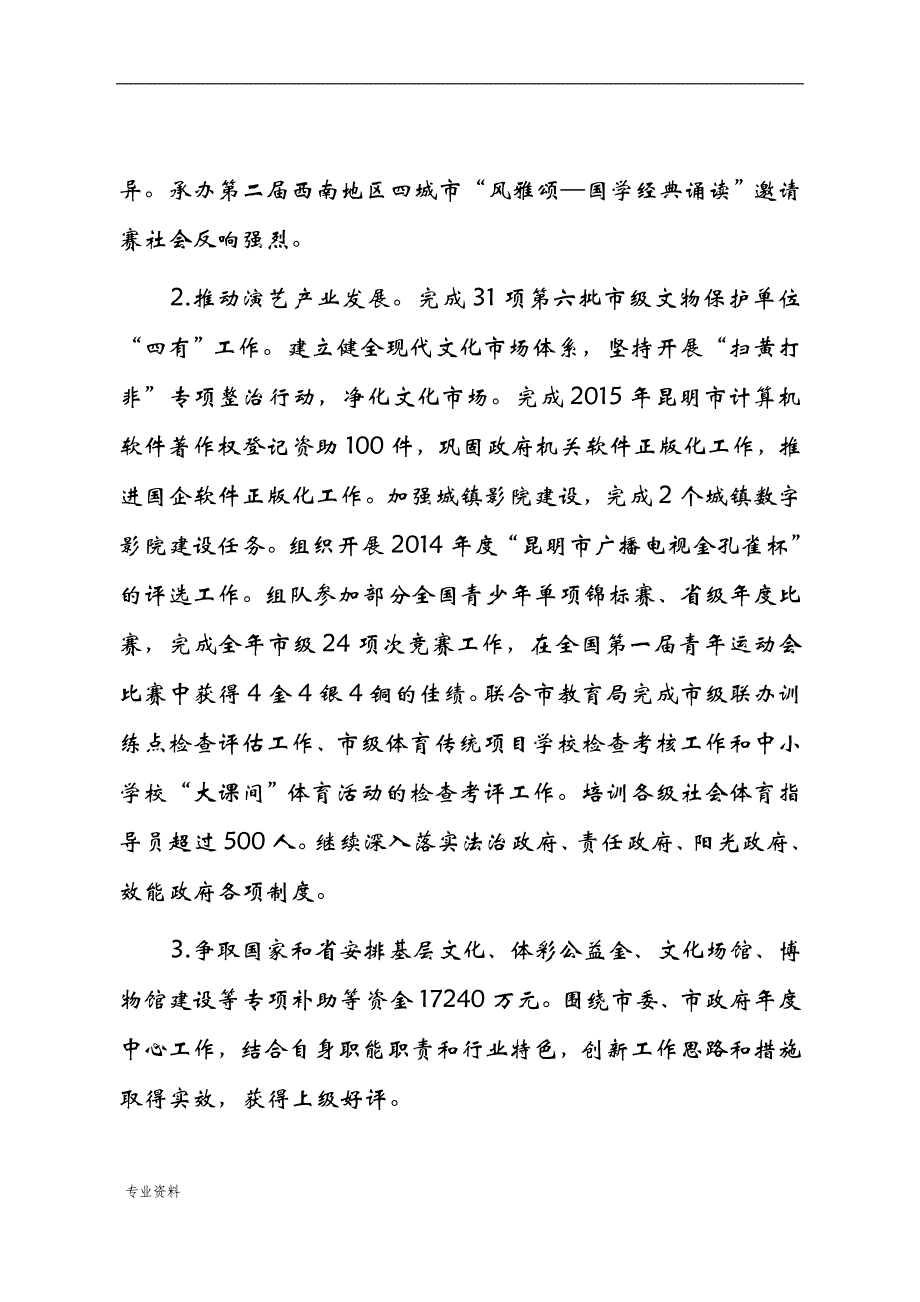 异。承办第二届西南地区四城市“风雅颂—国学经典诵读”邀请
赛社会反响强烈。
2.推动演艺产业发展。完成31项第六批市级文物保护单位
“四有”工作。建立健全现代文化市场体系，坚持开展“扫黄打
非”专项整治行动，净化文化市场。完成2015年昆明市计算机
软件著作权登记资助100件，巩固政府机关软件正版化工作，推
进国企软件正版化工作。加强城镇影院建设，完成2个城镇数字
影院建设任务。组织开展2014年度“昆明市广播电视金孔雀杯”
的评选工作。组队参加部分全国青少年单项锦标赛、省级年度比
赛，完成全年市级24项次竞赛工作，在全国第一届青年运动会
比赛中获得4金4银4铜的佳绩。联合市教育局完成市级联办训
练点检查评估工作、市级体育传统项目学校检查考核工作和中小
学校“大课间”体育活动的检查考评工作。培训各级社会体育指
导员超过500人。继续深入落实法治政府、责任政府、阳光政府、
效能政府各项制度。
3.争取国家和省安排基层文化、体彩公益金、文化场馆、博
物馆建设等专项补助等资金17240万元。围绕市委、市政府年度
中心工作，结合自身职能职责和行业特色，创新工作思路和措施
取得实效，获得上级好评。
专业资料